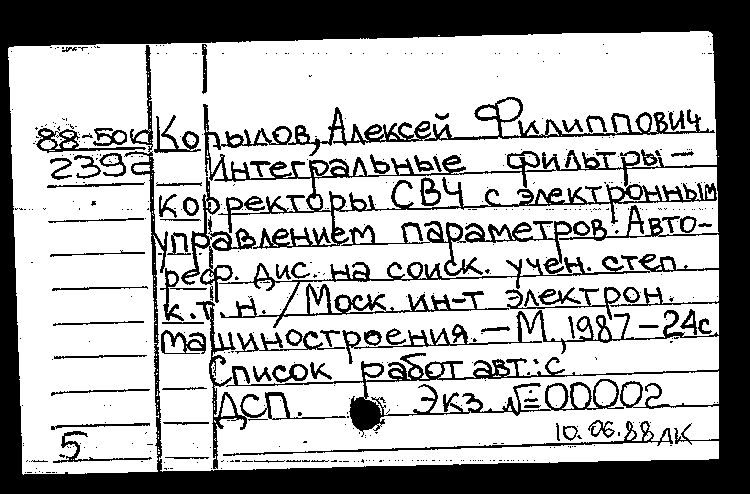 88-50к Копылов, Алексей Филиппович
2392 Интегральные фильтры-
корректоры СВЧ с электронным
управлением параметров: Авто-
реф. дис. на соиск. учен. степ.
к.т.н. / Моск. ин-т электрон.
машиностроения. – М., 1987 – 24с.
Список работ авт.: с.
ДСП. Экз. №00002
5 10.06.88 ЛК